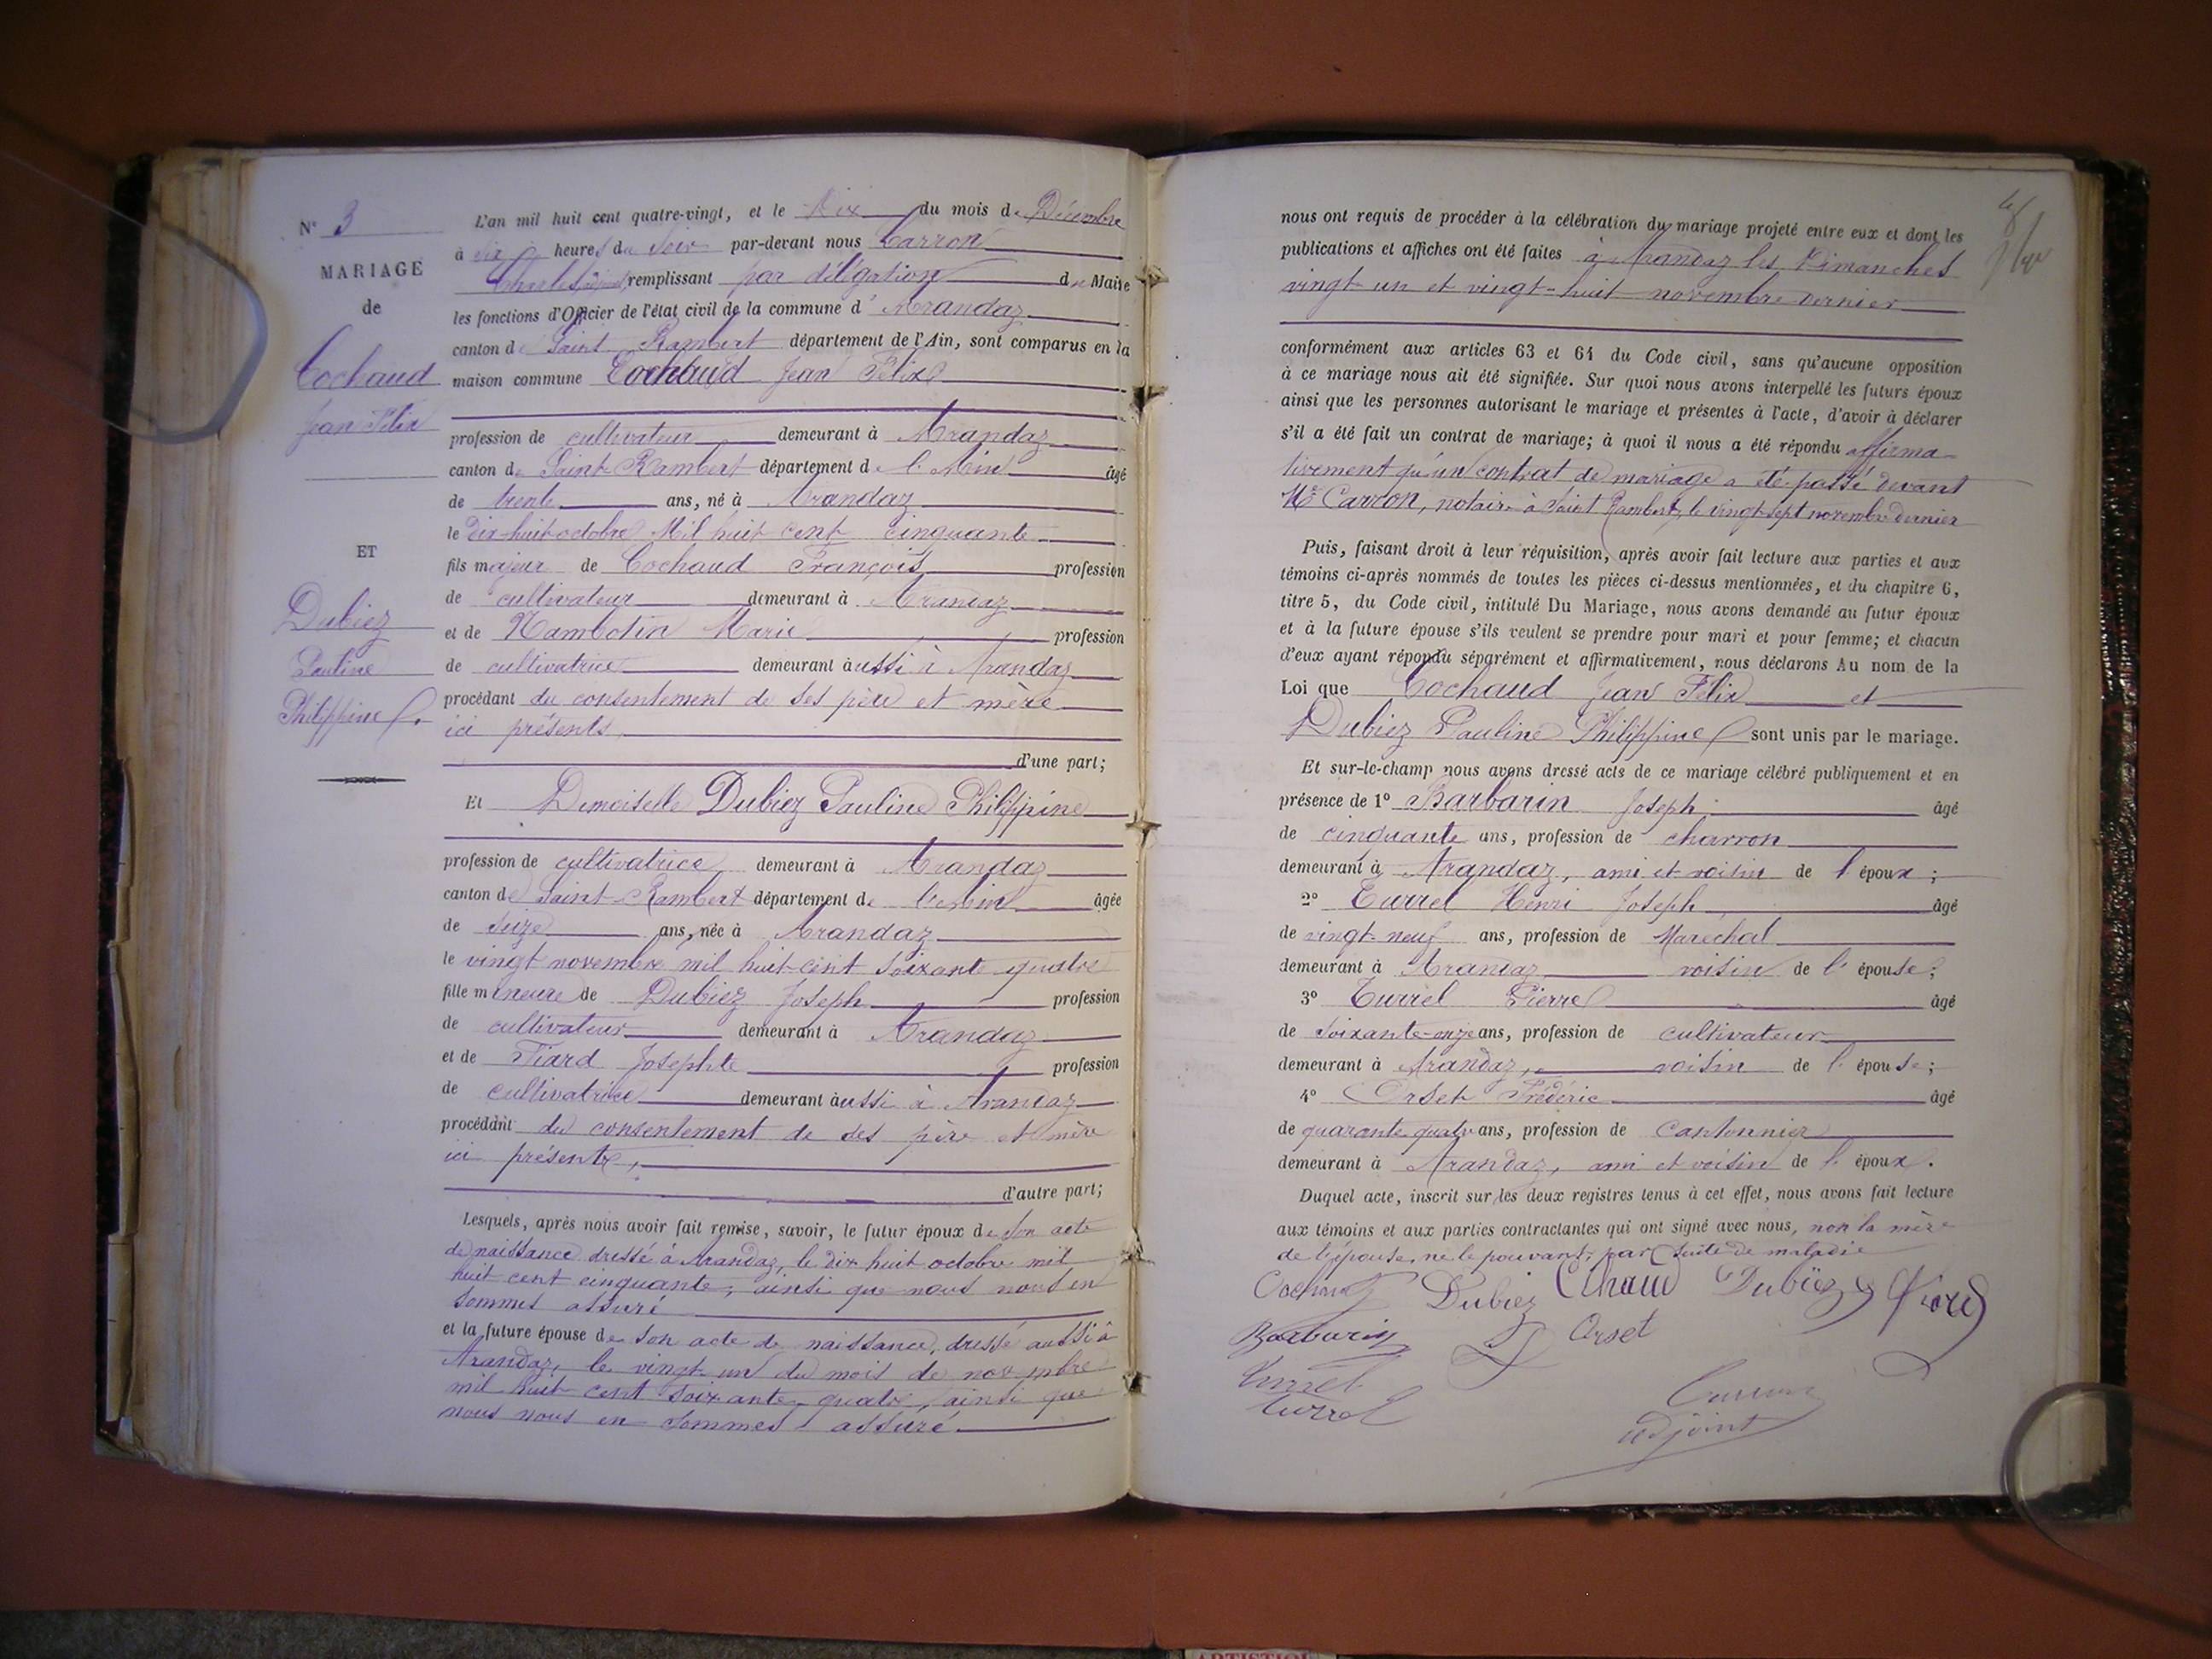 N° 3
MARIAGE
de
Cochaud
Jean Félix
ET
Dubiez
Pauline
Philippine
L'an mil huit cent quatre-vingt, et le Dix du mois de Décembre
à six heures du soir par-devant nous Carron
Charles, adjoint, remplissant par délégation du Maire
les fonctions d'Officier de l'état civil de la commune d' Arandaz
canton de Saint Rambert département de l'Ain, sont comparus en la
maison commune Cochaud Jean Félix
profession de cultivateur demeurant à Arandaz
canton de Saint-Rambert département de l'Ain âgé
de trente ans, né à Arandaz
le Dix-huit octobre Mil huit cent cinquante
fils majeur de Cochaud François profession
de cultivateur demeurant à Arandaz
et de Nambotin Marie profession
de cultivatrice demeurant aussi à Arandaz
procédant du consentement de ses père et mère
ici présents,
d'une part;
Et Demoiselle Dubiez Pauline Philippine
profession de cultivatrice demeurant à Arandaz
canton de Saint-Rambert département de l'Ain âgée
de seize ans, née à Arandaz
le vingt novembre mil huit-cent soixante quatre
fille mineure de Dubiez Joseph profession
de cultivateur demeurant à Arandaz
et de Tiard Josephte profession
de cultivatrice demeurant aussi à Arandaz
procédant du consentement de ses père et mère
ici présents,
d'autre part;
Lesquels, après nous avoir fait remise, savoir, le futur époux de son acte
de naissance dressé à Arandaz, le dix huit octobre mil
huit cent cinquante, ainsi que nous nous en
sommes assuré
et la future épouse de son acte de naissance, dressé aussi à
Arandaz, le vingt un du mois de novembre
mil huit cent soixante-quatre, ainsi que
nous nous en sommes assuré.
nous ont requis de procéder à la célébration du mariage projeté entre eux et dont les
publications et affiches ont été faites à Arandaz les Dimanches
vingt-un et vingt-huit novembre dernier
conformément aux articles 63 et 64 du Code civil, sans qu'aucune opposition
à ce mariage nous ait été signifiée. Sur quoi nous avons interpellé les futurs époux
ainsi que les personnes autorisant le mariage et présentes à l'acte, d'avoir à déclarer
s'il a été fait un contrat de mariage; à quoi il nous a été répondu affirma-
tivement qu'un contrat de mariage a été passé devant
Me Carron, notaire à Saint Rambert, le vingt-sept novembre dernier
Puis, faisant droit à leur réquisition, après avoir fait lecture aux parties et aux
témoins ci-après nommés de toutes les pièces ci-dessus mentionnées, et du chapitre 6,
titre 5, du Code civil, intitulé Du Mariage, nous avons demandé au futur époux
et à la future épouse s'ils veulent se prendre pour mari et pour femme; et chacun
d'eux ayant répondu séparément et affirmativement, nous déclarons Au nom de la
Loi que Cochaud Jean Félix et
Dubiez Pauline Philippine sont unis par le mariage.
Et sur-le-champ nous avons dressé acte de ce mariage célébré publiquement et en
présence de 1° Barbarin Joseph âgé
de cinquante ans, profession de charron
demeurant à Arandaz, ami et voisin de l'époux;
2° Turrel Henri Joseph âgé
de vingt-neuf ans, profession de Maréchal
demeurant à Arandaz voisin de l'épouse;
3° Turrel Pierre âgé
de soixante-onze ans, profession de cultivateur
demeurant à Arandaz, voisin de l'épouse;
4° Orset Frédéric âgé
de quarante quatre ans, profession de Cantonnier
demeurant à Arandaz, ami et voisin de l'époux.
Duquel acte, inscrit sur les deux registres tenus à cet effet, nous avons fait lecture
aux témoins et aux parties contractantes qui ont signé avec nous, non la mère
de l'épouse, ne le pouvant, par suite de maladie
Cochaud Dubiez Dubiez
Barbarin Orset
Turrel
Turrel
Carron
adjoint